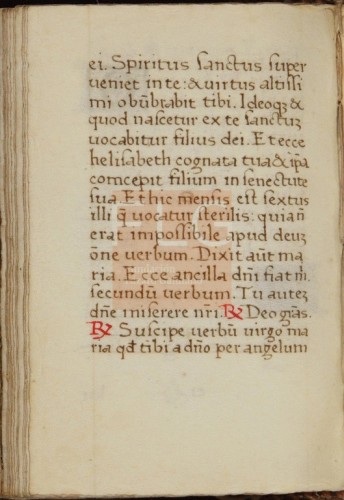 ei. Spiritus sanctus super
veniet in te: & virtus altissi
mi obūbrabit tibi. Ideoqʒ &
quod nascetur ex te sanctuʒ
vocabitur filius dei. Et ecce
helisabeth cognata tua & ip̄a
comcepit filium in senectute
sua. Et hic mensis est sextus
illi q̄ vocatur sterilis: quia ñ
erat impossibile apud deuʒ
om̄e verbum. Dixit aūt ma
ria. Ecce ancilla dñi fiat m̄.
secundū verbum. Tu auteʒ
dñe miserere nr̄i. ℟ Deo gr̄as.
℟ Suscipe verbū virgo ma
ria qđ tibi a dño per angelum